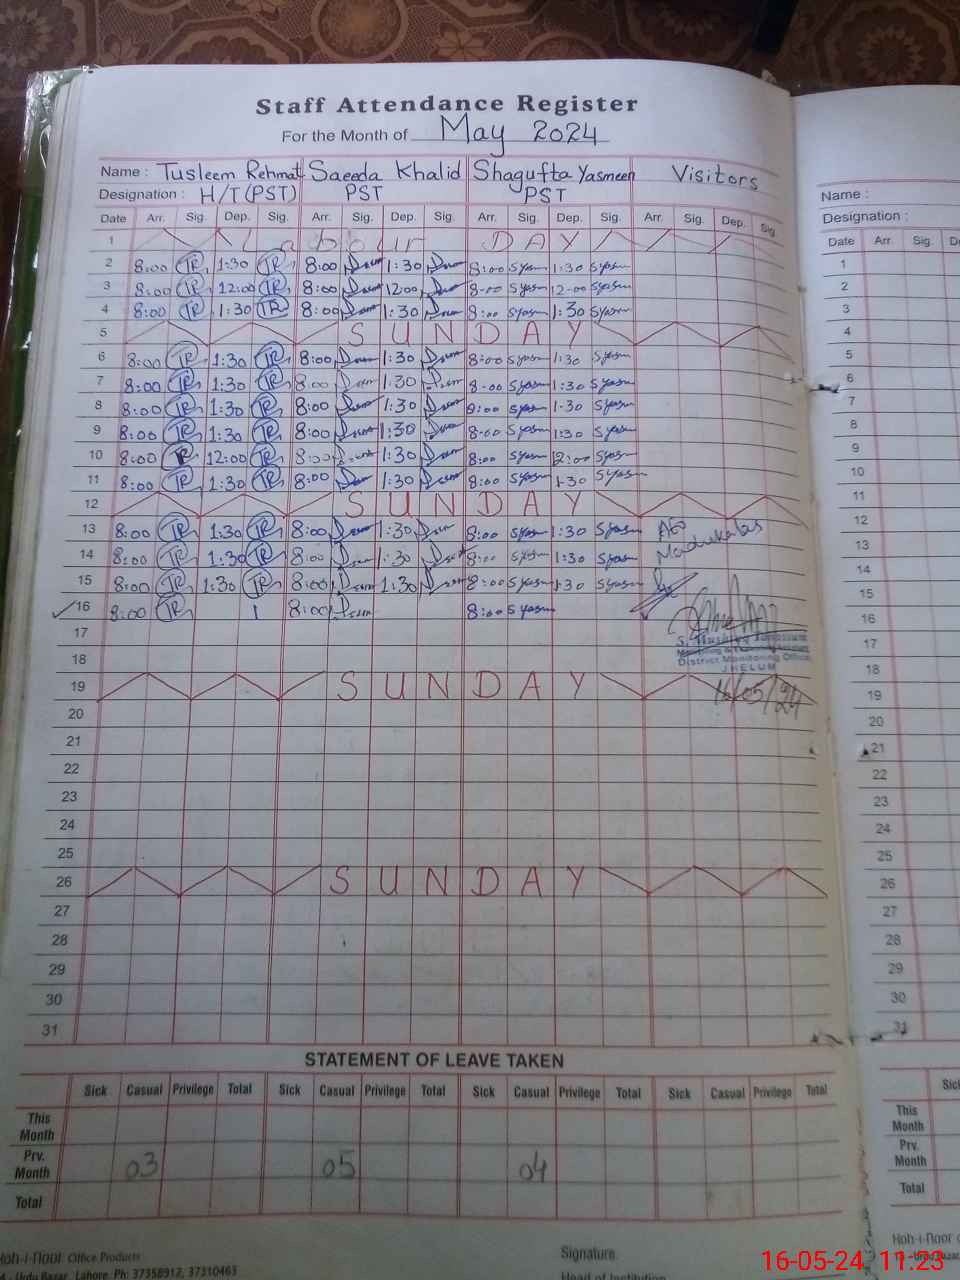 Staff Attendance Register
For the Month of May 2024
Name : Tusleem Rehmat Saeeda Khalid Shagufta Yasmeen Visitors
Designation : H/T (PST) PST PST
Date Arr. Sig. Dep. Sig. Arr. Sig. Dep. Sig. Arr. Sig. Dep. Sig. Arr. Sig. Dep. Sig.
1 Labour DAY
2 8:00 TR 1:30 TR 8:00 1:30 8:00 Syasm 1:30 Syasm
3 8:00 TR 12:00 TR 8:00 12:00 8-00 Syasm 12-00 Syasm
4 8:00 TR 1:30 TR 8:00 1:30 8:00 Syasm 1:30 Syasm
5 SUNDAY
6 8:00 TR 1:30 TR 8:00 1:30 8:00 Syasm 1:30 Syasm
7 8:00 TR 1:30 TR 8:00 1:30 8-00 Syasm 1:30 Syasm
8 8:00 TR 1:30 TR 8:00 1:30 8:00 Syasm 1-30 Syasm
9 8:00 TR 1:30 TR 8:00 1:30 8-00 Syasm 1:30 Syasm
10 8:00 TR 12:00 TR 8:00 1:30 8:00 Syasm 12:00 Syasm
11 8:00 TR 1:30 TR 8:00 1:30 8:00 Syasm 1-30 Syasm
12 SUNDAY
13 8:00 TR 1:30 TR 8:00 1:30 8:00 Syasm 1:30 Syasm AEO
14 8:00 TR 1:30 TR 8:00 1:30 8:00 Syasm 1:30 Syasm
15 8:00 TR 1:30 TR 8:00 1:30 8:00 Syasm 1:30 Syasm
16 8:00 TR 8:00 8:00 Syasm
17
18
District Monitoring Office
JHELUM
19 SUNDAY
16/05/24
20
21
22
23
24
25
26 SUNDAY
27
28
29
30
31
STATEMENT OF LEAVE TAKEN
Sick Casual Privilege Total Sick Casual Privilege Total Sick Casual Privilege Total Sick Casual Privilege Total
This Month
Prv. Month 03 05 04
Total
Koh-i-Noor Office Products
Urdu Bazar, Lahore. Ph: 37358912, 37310463
Signature
Head of Institution
Name :
Designation :
Date Arr. Sig.
1
2
3
4
5
6
7
8
9
10
11
12
13
14
15
16
17
18
19
20
21
22
23
24
25
26
27
28
29
30
31
This Month
Prv. Month
Total
Koh-i-Noor
16-05-24 11:23